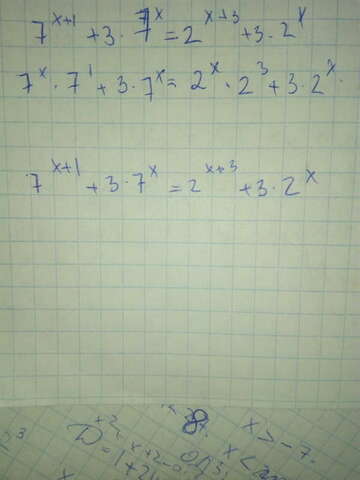 7^{x+1} + 3 · 7^x = 2^{x+3} + 3 · 2^x
7^x · 7^1 + 3 · 7^x = 2^x · 2^3 + 3 · 2^x
7^{x+1} + 3 · 7^x = 2^{x+3} + 3 · 2^x
x > -7.